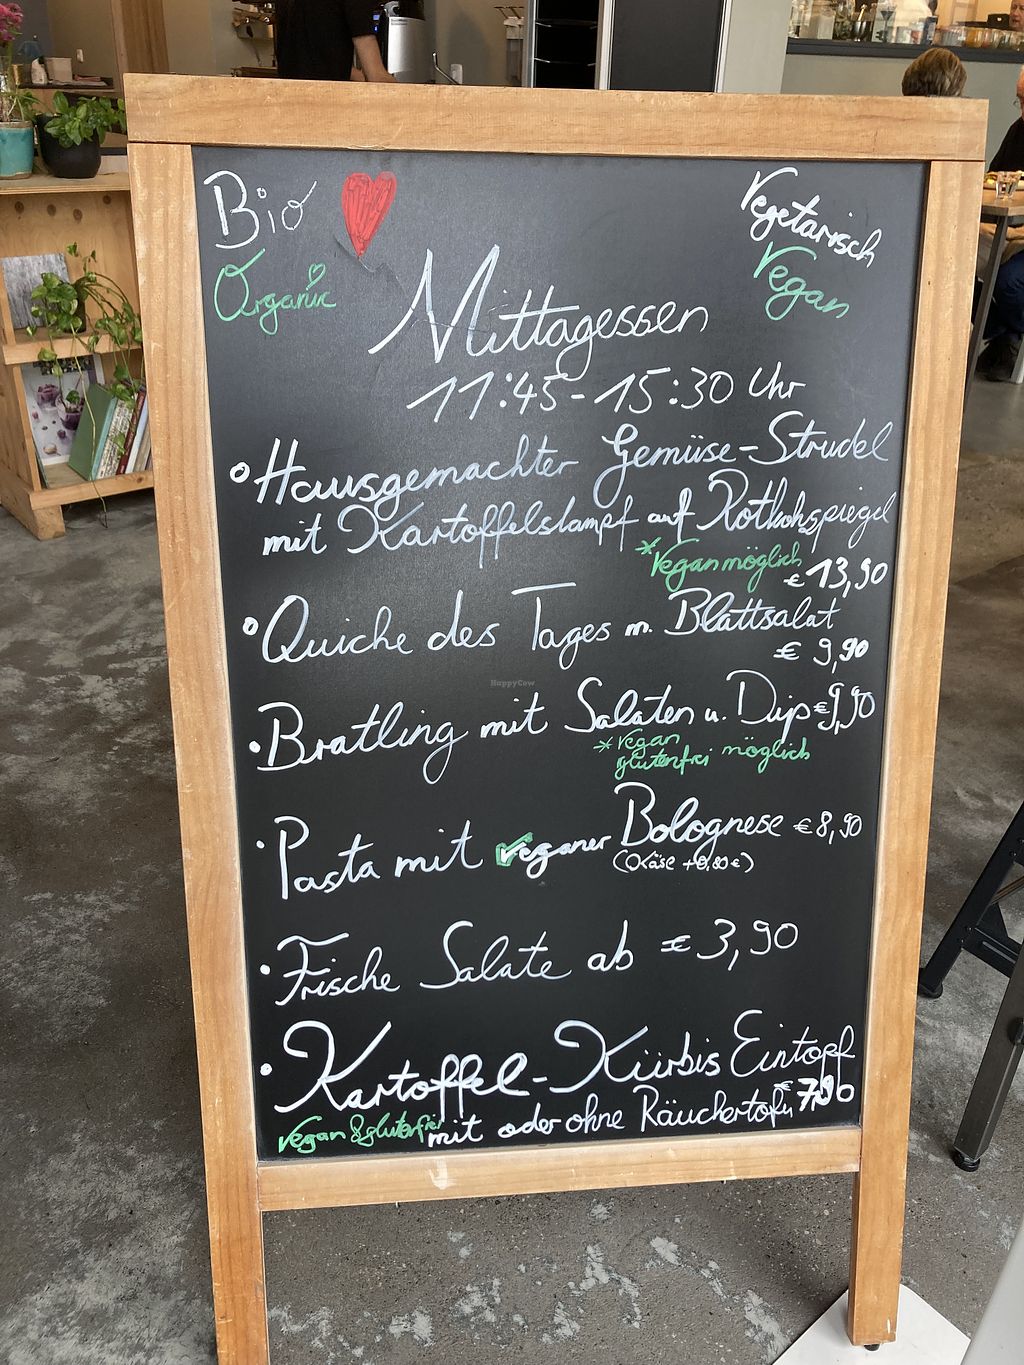 Bio
Organic
Vegetarisch
Vegan
Mittagessen
11:45-15:30 Uhr
Hausgemachter Gemüse-Strudel
mit Kartoffelstampf auf Rotkohspiegel
*Vegan möglich
€ 13,90
Quiche des Tages m. Blattsalat
€ 9,90
HappyCow
Bratling mit Salaten u. Dip €9,90
*vegan
glutenfrei möglich
Pasta mit veganer Bolognese €8,90
(Käse +0,80€)
Frische Salate ab € 3,90
Kartoffel-Kürbis Eintopf
€7,90
Vegan & glutenfrei mit oder ohne Räuchertofu